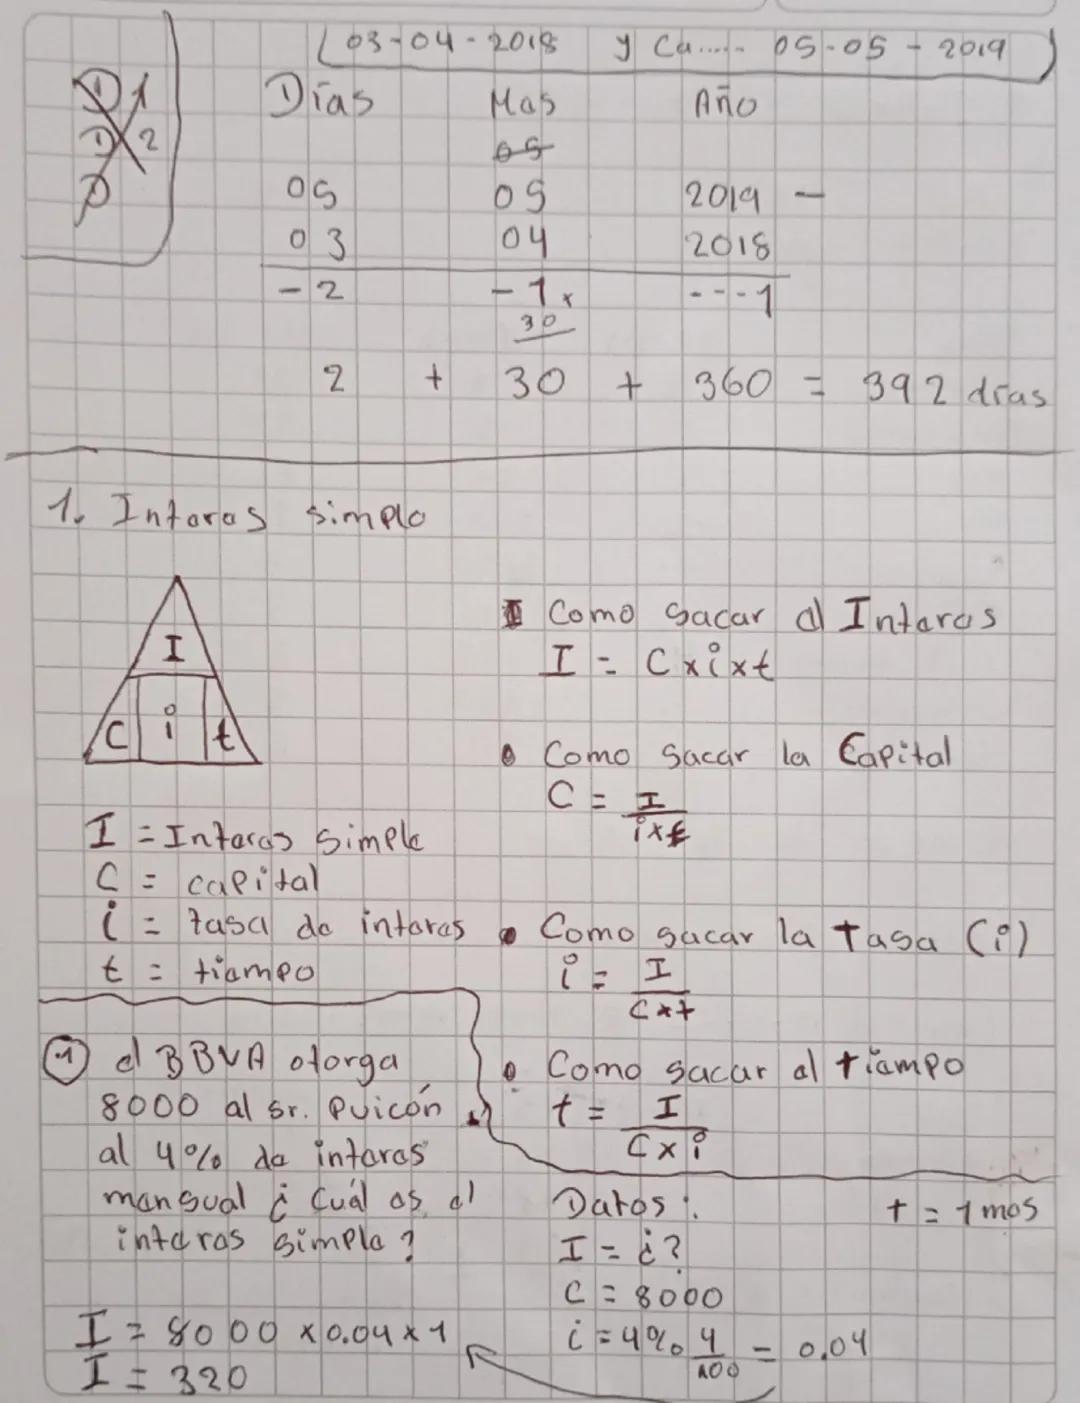 03-04-2018 y Ca..... 05-05-2019
D 1
D 2
D
Días Mes Año
05
05 05 2019 -
03 04 2018
- 2 - 1 x - - - 1
30
2 + 30 + 360 = 392 días
1. Interes simple
I
C i t
I = Interes simple
C = capital
i = tasa de interes
t = tiempo
Como sacar el Interes
I = C x i x t
• Como sacar la Capital
C = I
i x t
• Como sacar la Tasa (i)
i = I
C x t
• Como sacar el tiempo
t = I
C x i
1 el BBVA otorga
8000 al sr. Puicón
al 4% de interes
mensual ¿ Cuál es el
interes simple ?
I = 8000 x 0.04 x 1
I = 320
Datos : t = 1 mes
I = ¿?
C = 8000
i = 4% 4 = 0,04
100